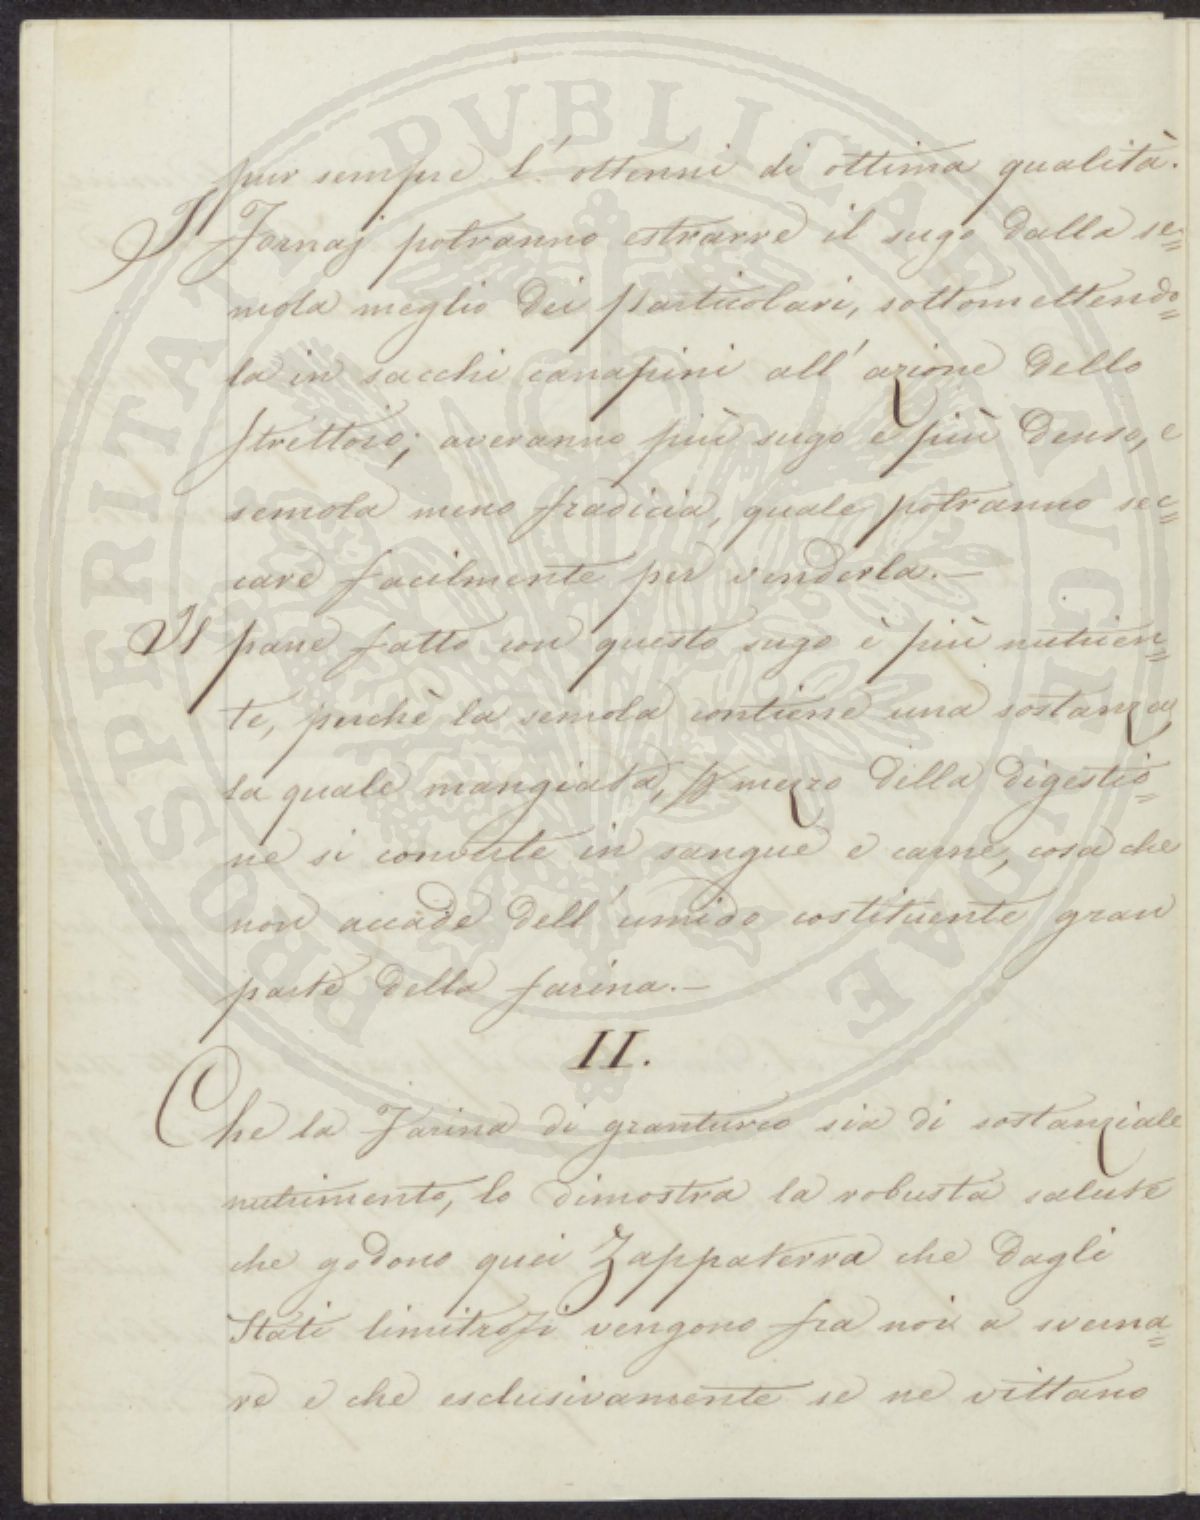 pur sempre l'ottenni di ottima qualità.
I Fornaj potranno estrarre il sugo dalla se=
mola meglio dei particolari, sottomettendo=
la in sacchi canapini all'azione dello
strettojo; averanno più sugo e più denso, e
semola meno fradicia, quale potranno sec=
care facilmente per venderla.—
Il pane fatto con questo sugo è più nutrien=
te, perchè la semola contiene una sostanza
la quale mangiata, p mezzo della digestio=
ne si converte in sangue e carne, cosa che
non accade dell'umido costituente gran
parte della farina.—
II.
Che la Farina di granturco sia di sostanziale
nutrimento, lo dimostra la robusta salute
che godono quei Zappaterra che dagli
Stati limitrofi vengono fra noi a sverna=
re e che esclusivamente se ne vittano
PROSPERITATI PVBLICAE AVGENDAE